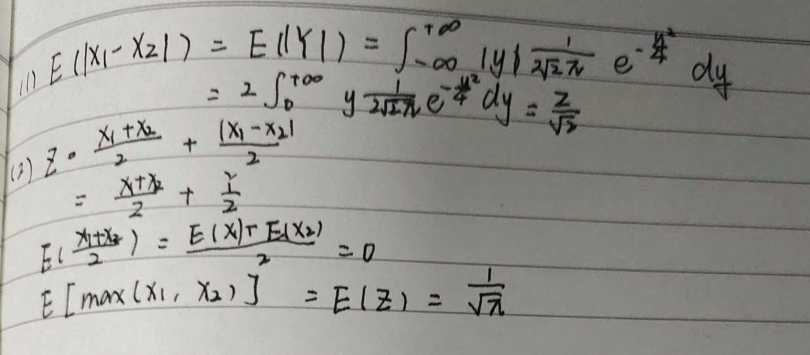 (1) E(|X1-X2|) = E(|Y|) = ∫-∞+∞ |y| 1/2√2π e^-y²/4 dy
= 2∫0+∞ y 1/2√2π e^-y²/4 dy = 2/√2
(2) Z = X1+X2/2 + |X1-X2|/2
= X1+X2/2 + Y/2
E(X1+X2/2) = E(X1)+E(X2)/2 = 0
E[max(X1, X2)] = E(Z) = 1/√π